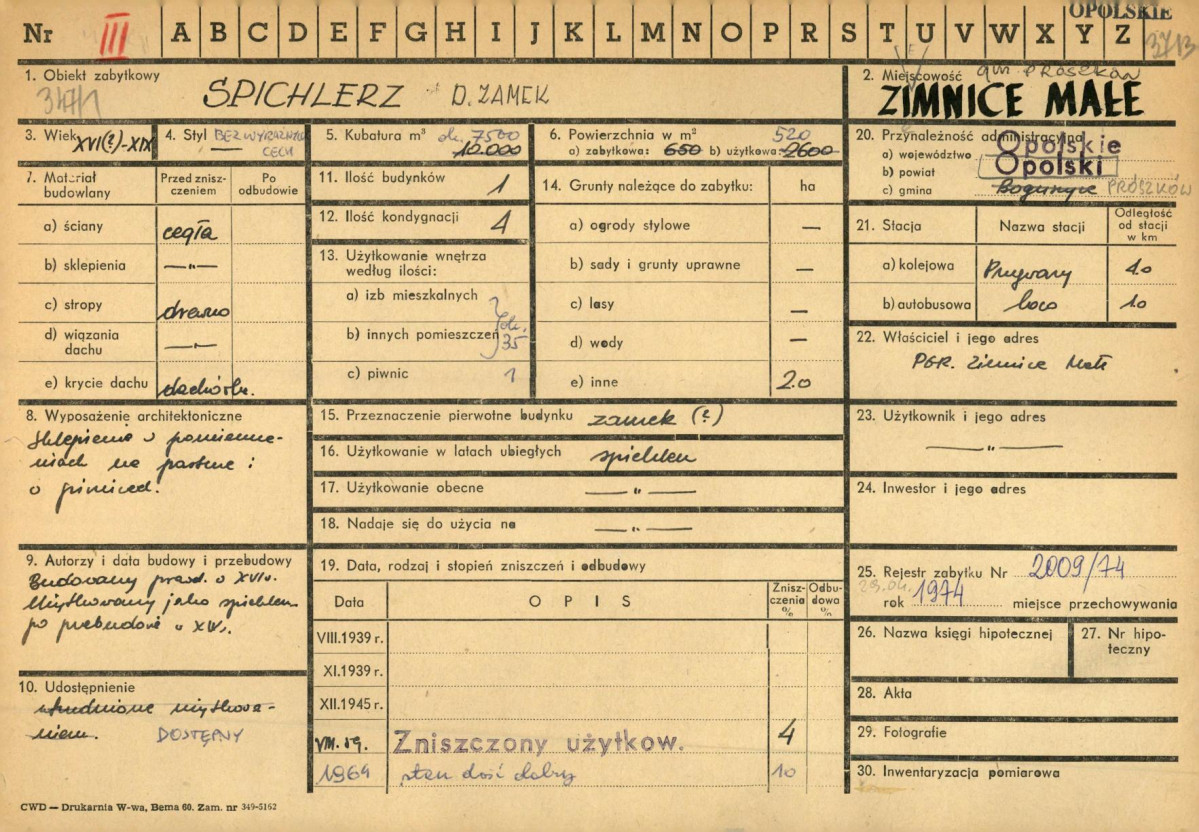 OPOLSKIE
Nr III A B C D E F G H I J K L M N O P R S T U V W X Y Z 3713
1. Obiekt zabytkowy
347/1
SPICHLERZ D. ZAMEK
2. Miejscowość gm. PRÓSZKÓW
ZIMNICE MAŁE
3. Wiek XVI(?)-XIX
4. Styl BEZ WYRAŹNYCH
CECH
5. Kubatura m³ ok. 7500
10.000
6. Powierzchnia w m² 520
a) zabytkowa: 650 b) użytkowa: 2600
20. Przynależność administracyjna
a) województwo Opolskie
b) powiat Opolski
c) gmina PRÓSZKÓW
7. Materiał budowlany
Przed znisz-
czeniem
Po
odbudowie
a) ściany cegła
b) sklepienia —„—
c) stropy drewno
d) wiązania
dachu —„—
e) krycie dachu
11. Ilość budynków 1
12. Ilość kondygnacji 4
13. Użytkowanie wnętrza
według ilości:
a) izb mieszkalnych
b) innych pomieszczeń ok.
35
c) piwnic 1
14. Grunty należące do zabytku: ha
a) ogrody stylowe —
b) sady i grunty uprawne —
c) lasy —
d) wody —
e) inne 2.0
21. Stacja
Nazwa stacji
Odległość
od stacji
w km
a) kolejowa
b) autobusowa loco
22. Właściciel i jego adres
PGR. Zimnice Małe
8. Wyposażenie architektoniczne
Sklepienia w pomieszcze-
niach na parterze i
w piwnicach.
15. Przeznaczenie pierwotne budynku zamek (?)
16. Użytkowanie w latach ubiegłych spichlerz
17. Użytkowanie obecne —„—
18. Nadaje się do użycia na —„—
23. Użytkownik i jego adres
—„—
24. Inwestor i jego adres
9. Autorzy i data budowy i przebudowy
Budowany prawd. w XVI w.
Użytkowany jako spichlerz
po przebudowie w
10. Udostępnienie
utrudnione użytkowa-
niem. DOSTĘPNY
19. Data, rodzaj i stopień zniszczeń i odbudowy
Data
OPIS
Znisz-
czenia
%
Odbu-
dowa
%
VIII.1939 r.
XI.1939 r.
XII.1945 r.
VIII. 59. Zniszczony użytkow. 4
1964 stan dość dobry 10
25. Rejestr zabytku Nr 2009/74
23.04.
rok 1974 miejsce przechowywania
26. Nazwa księgi hipotecznej
27. Nr hipo-
teczny
28. Akta
29. Fotografie
30. Inwentaryzacja pomiarowa
CWD — Drukarnia W-wa, Bema 60. Zam. nr 349-5162